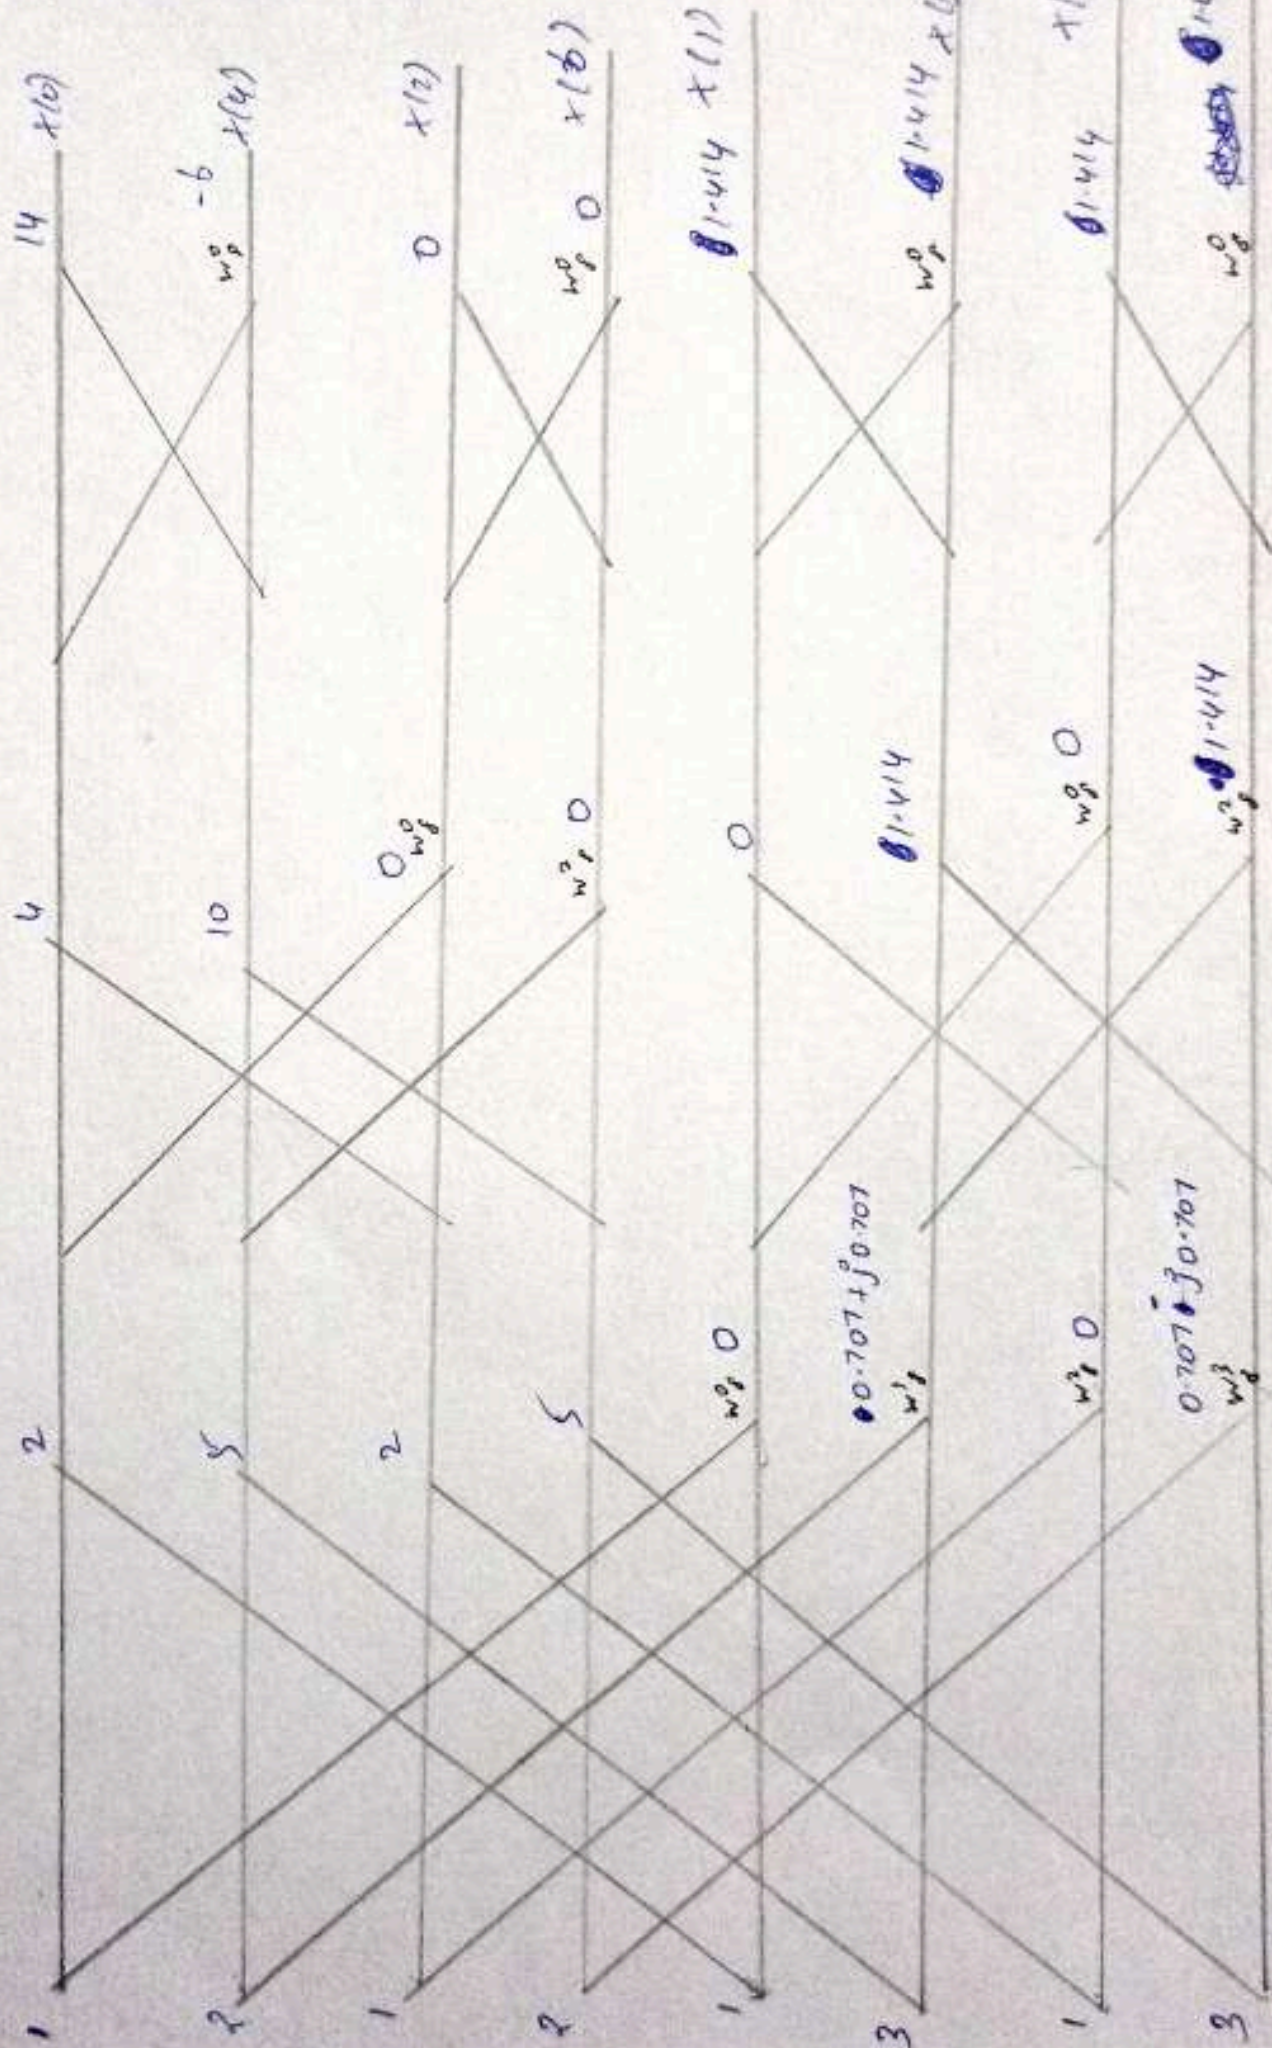 1 2 4 14 X(0)
2 5 10 W₈⁰ -6 X(4)
1 2 W₈⁰ 0 0 X(2)
2 5 W₈² 0 W₈⁰ 0 X(6)
1 W₈⁰ 0 0 1.414 X(1)
3 W₈¹ 0.707+j0.707 1.414 W₈⁰ 1.414
1 W₈² 0 W₈⁰ 0 1.414
3 W₈³ 0.707-j0.707 W₈² 1.414 W₈⁰